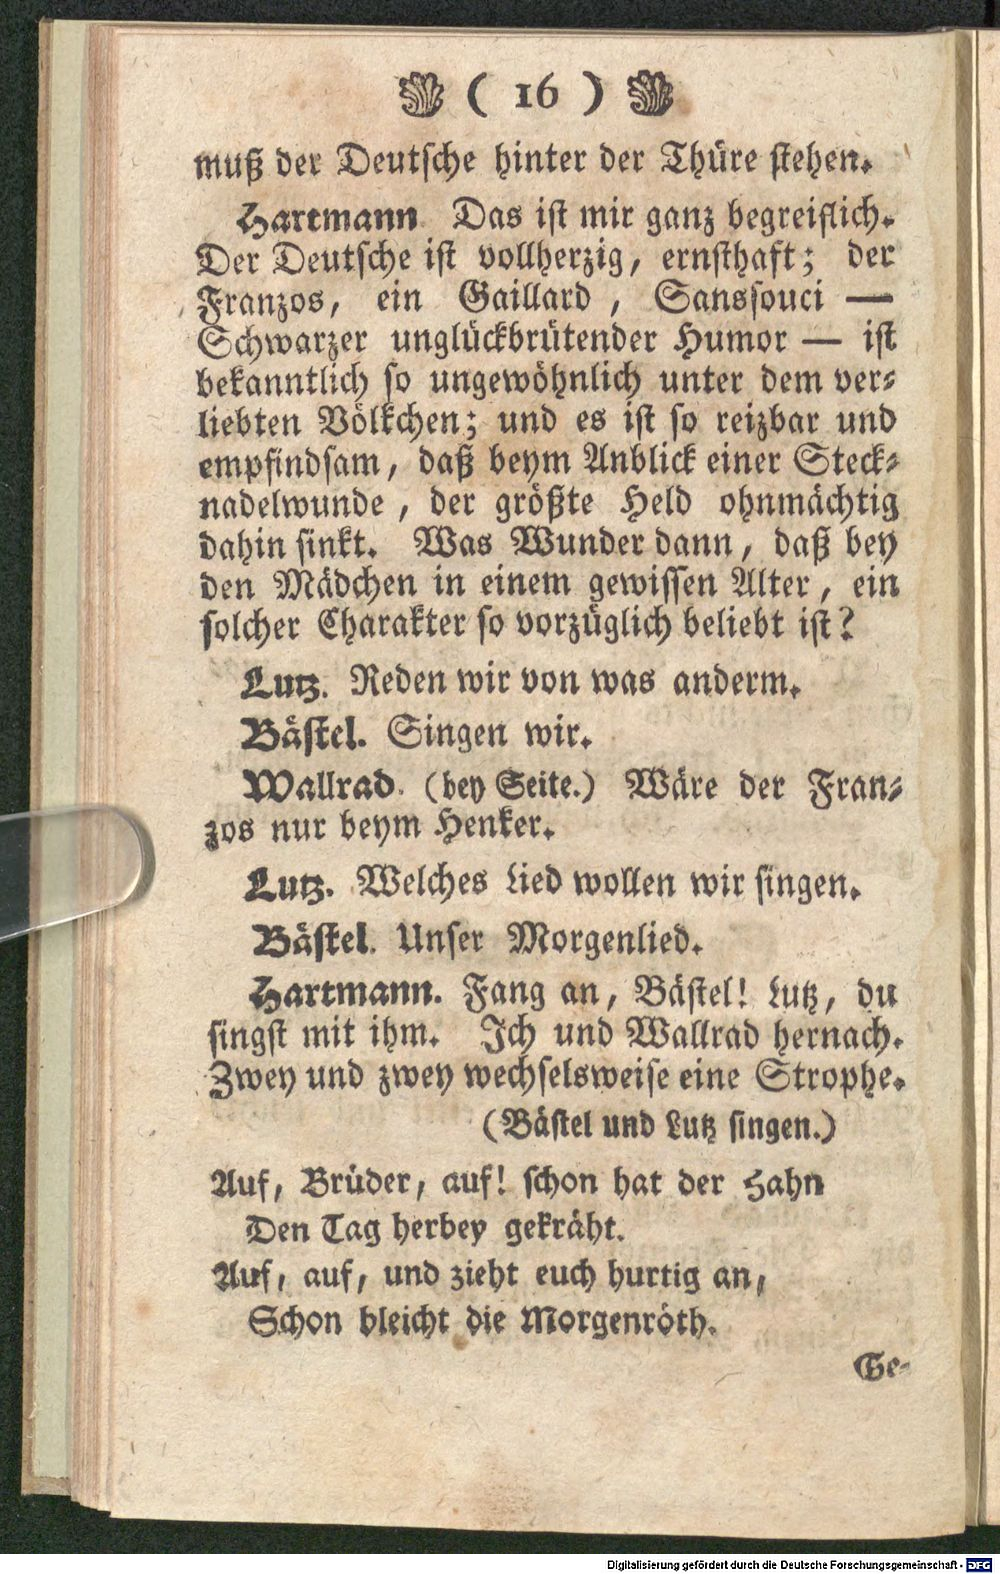 ( 16 )
muß der Deutsche hinter der Thüre stehen.
Hartmann. Das ist mir ganz begreiflich.
Der Deutsche ist vollherzig, ernsthaft; der
Franzos, ein Gaillard, Sanssouci —
Schwarzer unglückbrütender Humor — ist
bekanntlich so ungewöhnlich unter dem ver-
liebten Völkchen; und es ist so reizbar und
empfindsam, daß beym Anblick einer Steck-
nadelwunde, der größte Held ohnmächtig
dahin sinkt. Was Wunder dann, daß bey
den Mädchen in einem gewissen Alter, ein
solcher Charakter so vorzüglich beliebt ist?
Lutz. Reden wir von was anderm.
Bästel. Singen wir.
Wallrad. (bey Seite.) Wäre der Fran-
zos nur beym Henker.
Lutz. Welches Lied wollen wir singen.
Bästel. Unser Morgenlied.
Hartmann. Fang an, Bästel! Lutz, du
singst mit ihm. Ich und Wallrad hernach.
Zwey und zwey wechselsweise eine Strophe.
(Bästel und Lutz singen.)
Auf, Brüder, auf! schon hat der Hahn
Den Tag herbey gekräht.
Auf, auf, und zieht euch hurtig an,
Schon bleicht die Morgenröth.
Ge-
Digitalisierung gefördert durch die Deutsche Forschungsgemeinschaft - DFG